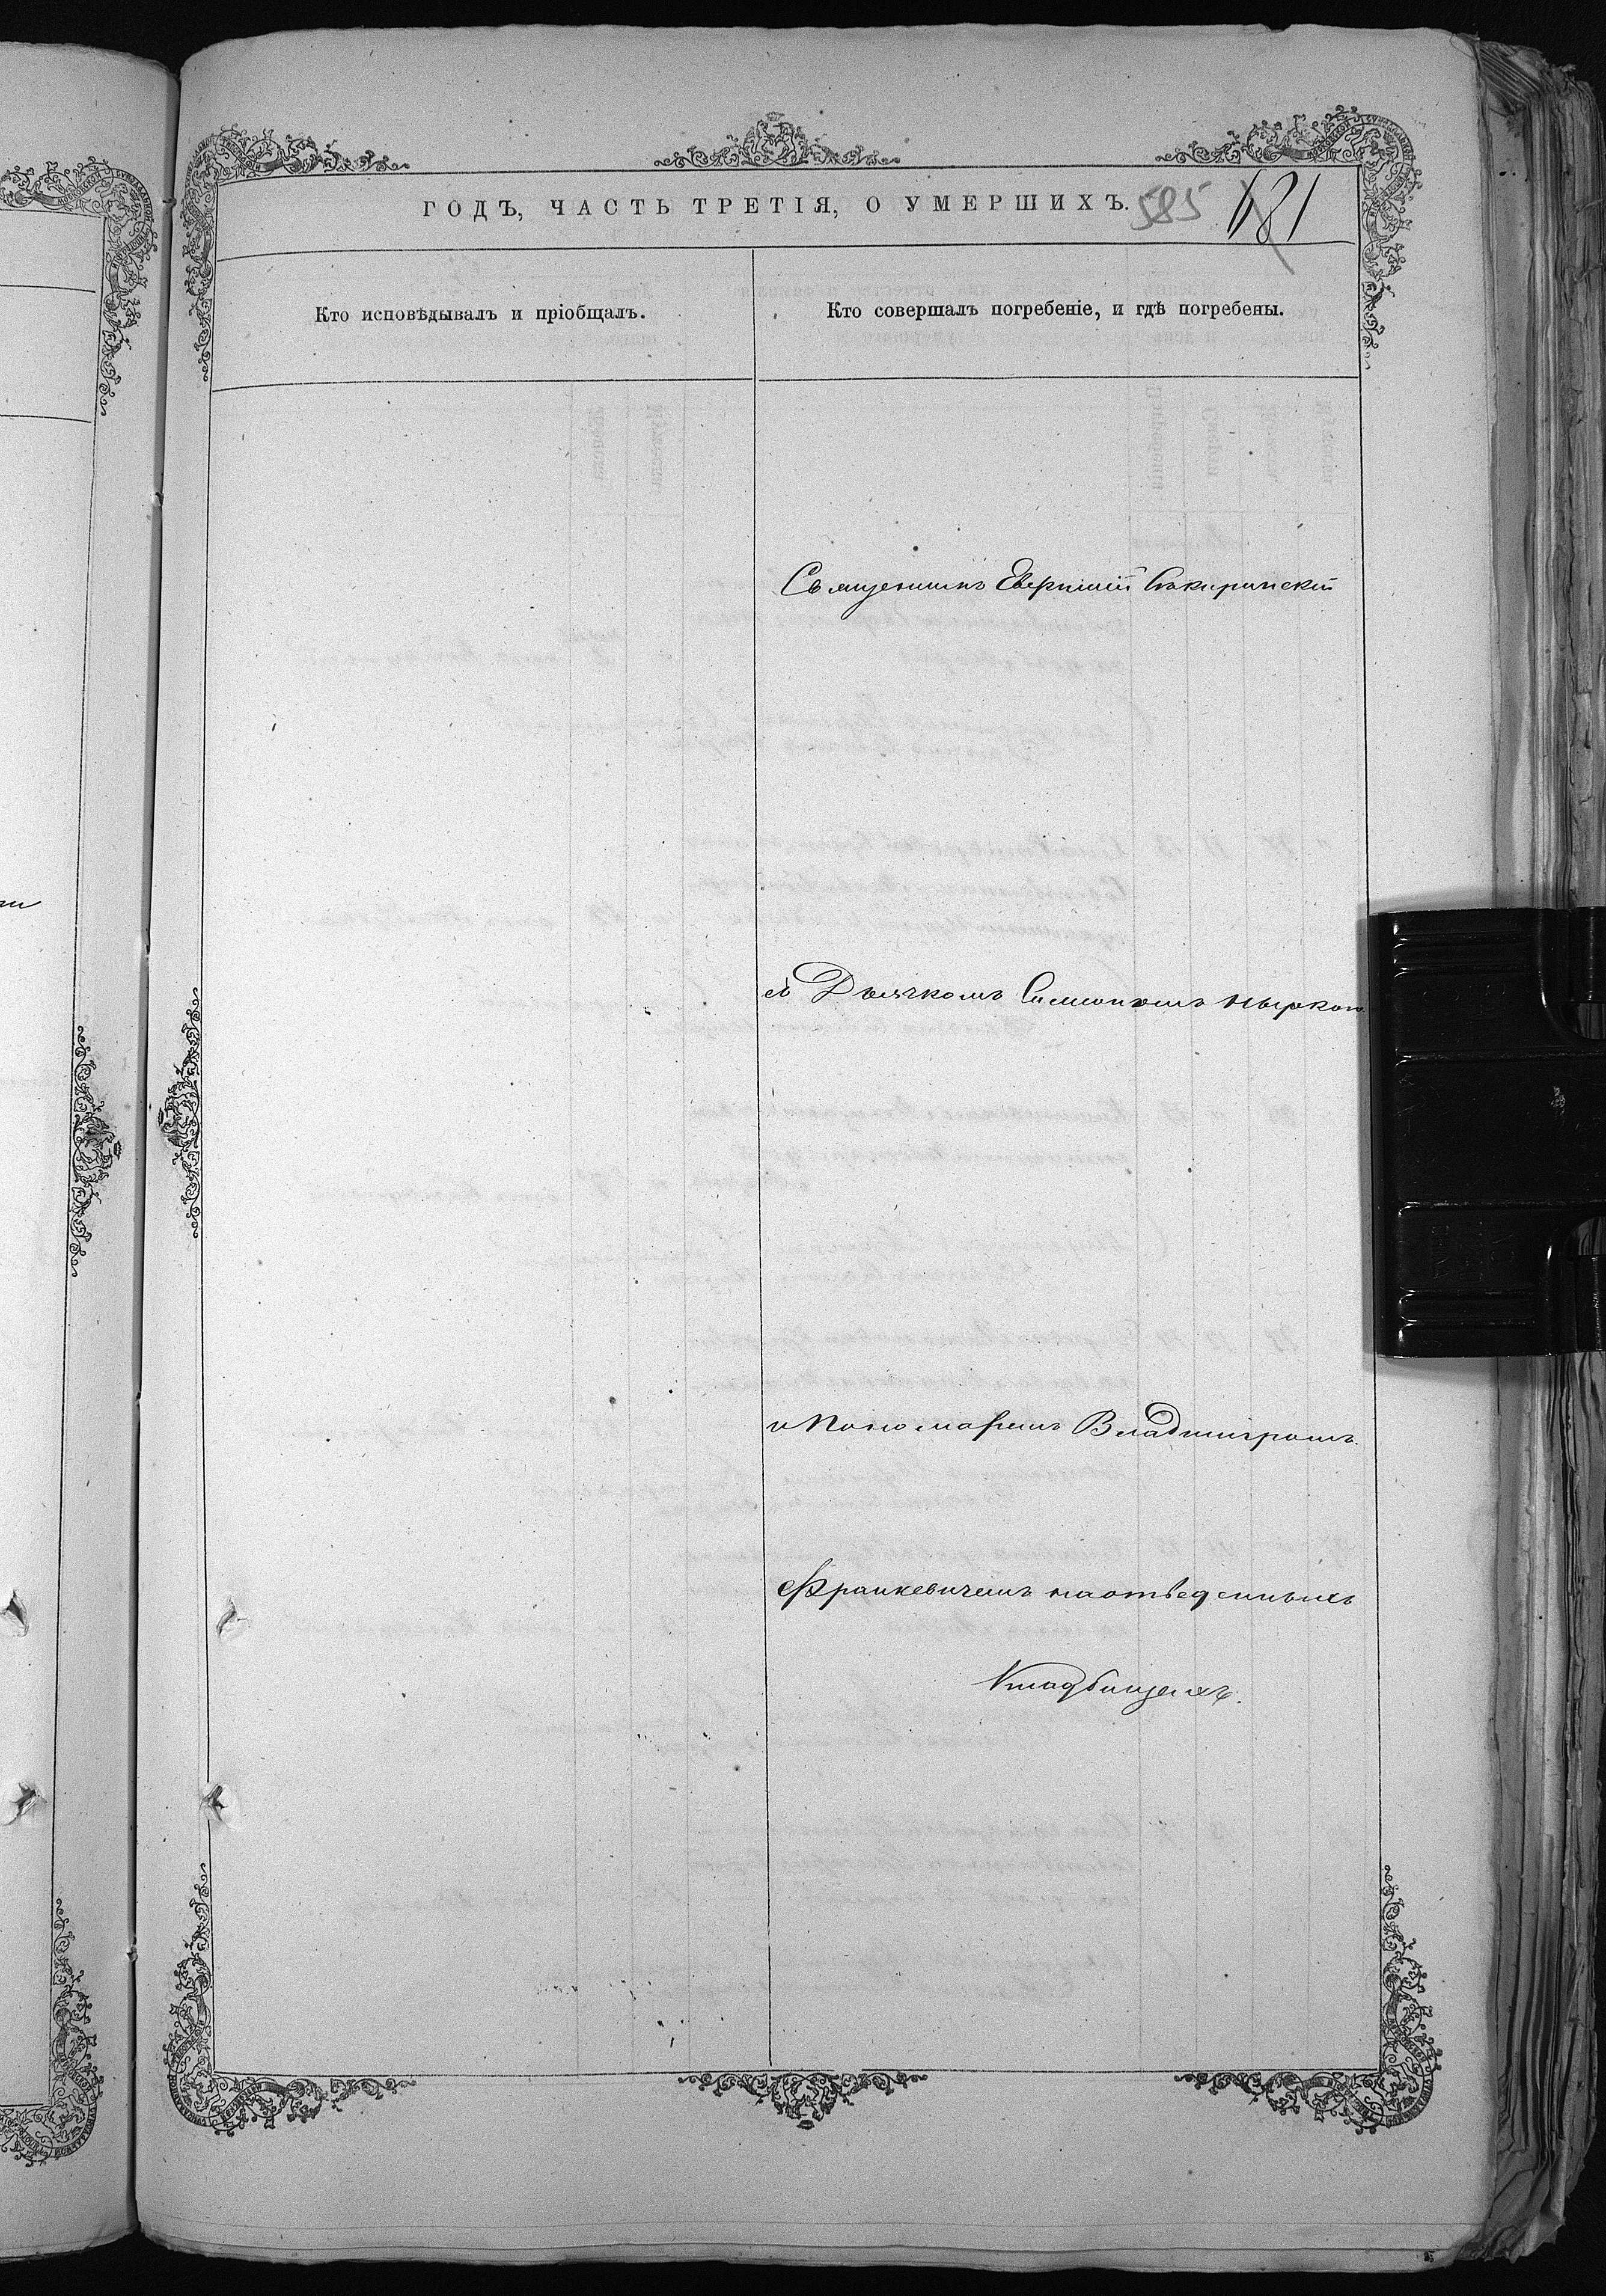 ГОДЪ, ЧАСТЬ ТРЕТІЯ, О УМЕРШИХЪ. 585 181
Кто исповѣдывалъ и пріобщалъ.
Кто совершалъ погребеніе, и гдѣ погребены.
Священникъ Евфимій Сѣкиринскій
съ Дьячкомъ Симономъ
и Пономаремъ Владиміромъ
Франкевичемъ на отведенныхъ
Кладбищахъ.